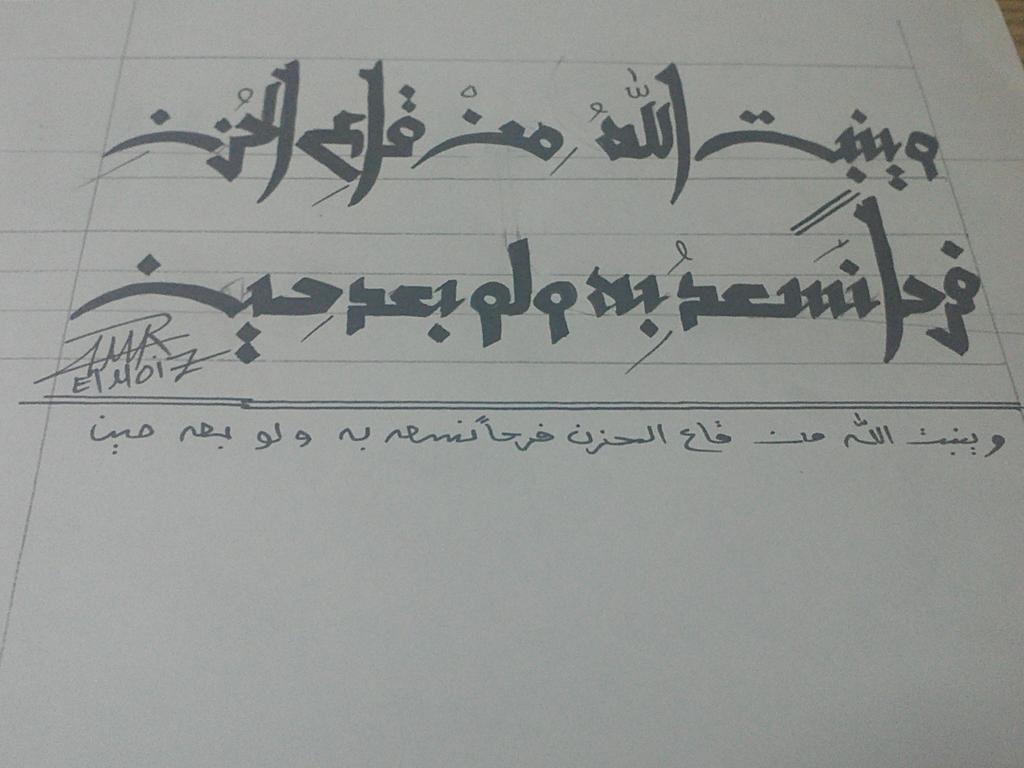 وينبت اللّهُ مِنْ قاعِ الحُزن
فرحاً نسعدُ بِه ولو بعد حِين
AMR
ELMOIZ
وينبت الله من قاع الحزن فرحاً نسعد به ولو بعد حين